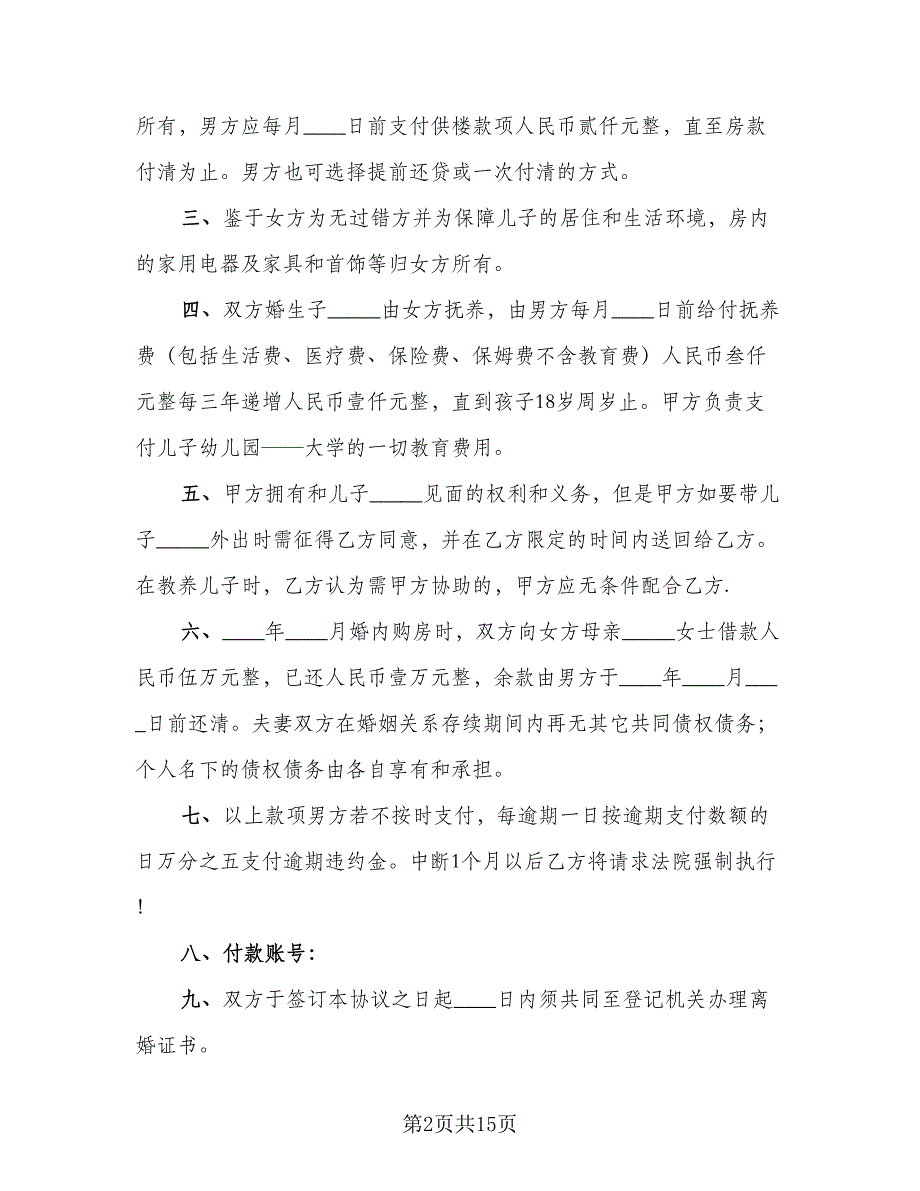 所有，男方应每月____日前支付供楼款项人民币贰仟元整，直至房款
付清为止。男方也可选择提前还贷或一次付清的方式。
三、鉴于女方为无过错方并为保障儿子的居住和生活环境，房内
的家用电器及家具和首饰等归女方所有。
四、双方婚生子_____由女方抚养，由男方每月____日前给付抚养
费（包括生活费、医疗费、保险费、保姆费不含教育费）人民币叁仟
元整每三年递增人民币壹仟元整，直到孩子18岁周岁止。甲方负责支
付儿子幼儿园——大学的一切教育费用。
五、甲方拥有和儿子_____见面的权利和义务，但是甲方如要带儿
子_____外出时需征得乙方同意，并在乙方限定的时间内送回给乙方。
在教养儿子时，乙方认为需甲方协助的，甲方应无条件配合乙方.
六、____年____月婚内购房时，双方向女方母亲_____女士借款人
民币伍万元整，已还人民币壹万元整，余款由男方于____年____月___
_日前还清。夫妻双方在婚姻关系存续期间内再无其它共同债权债务；
个人名下的债权债务由各自享有和承担。
七、以上款项男方若不按时支付，每逾期一日按逾期支付数额的
日万分之五支付逾期违约金。中断1个月以后乙方将请求法院强制执行
！
八、付款账号：
九、双方于签订本协议之日起____日内须共同至登记机关办理离
婚证书。
第2页共15页